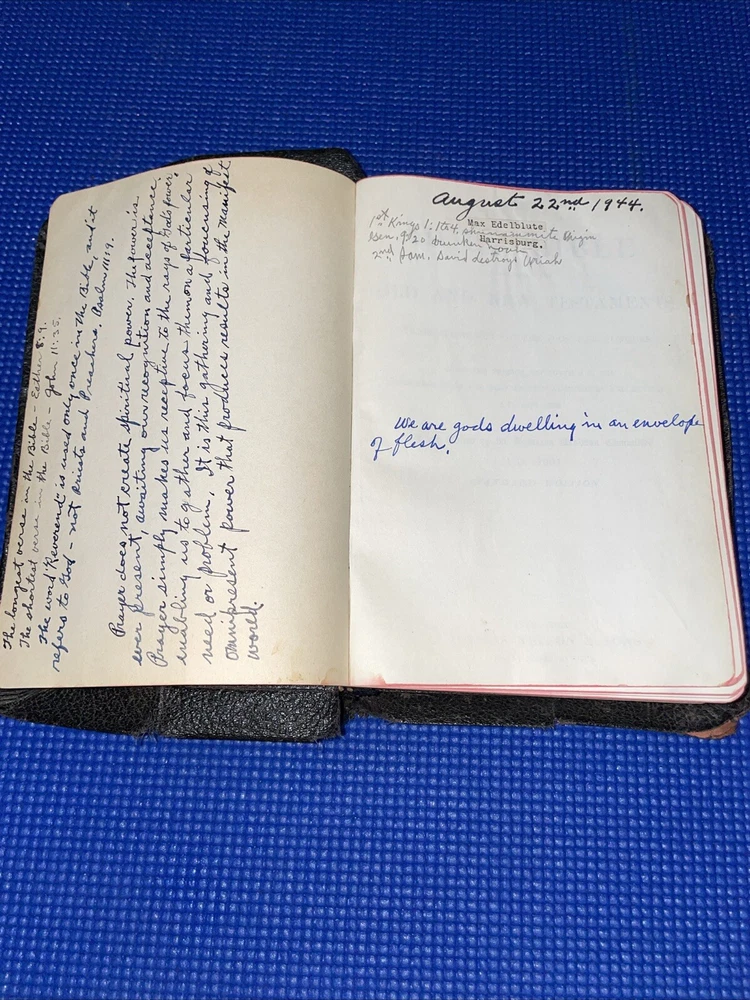 The longest verse in the Bible - Esther 8:9.
The shortest verse in the Bible - John 11:35.
The word "Reverend" is used only once in the Bible, and it
refers to God - not Priests and Preachers. Psalm 111:9.
Prayer does not create spiritual power. This power is
ever present, awaiting our recognition and acceptance.
Prayer simply makes us receptive to the rays of God's power,
enabling us to gather and focus them on a particular
need or problem. It is this gathering and foucusing of
omnipresent power that produces results in the manifest
world.
August 22nd 1944.
Max Edelblute
1st Kings 1:1to4, shunammite Virgin
Harrisburg.
Gen. 9:20 Drunken Noah
2nd Sam. David destroys Uriah
We are gods dwelling in an envelope
of flesh.